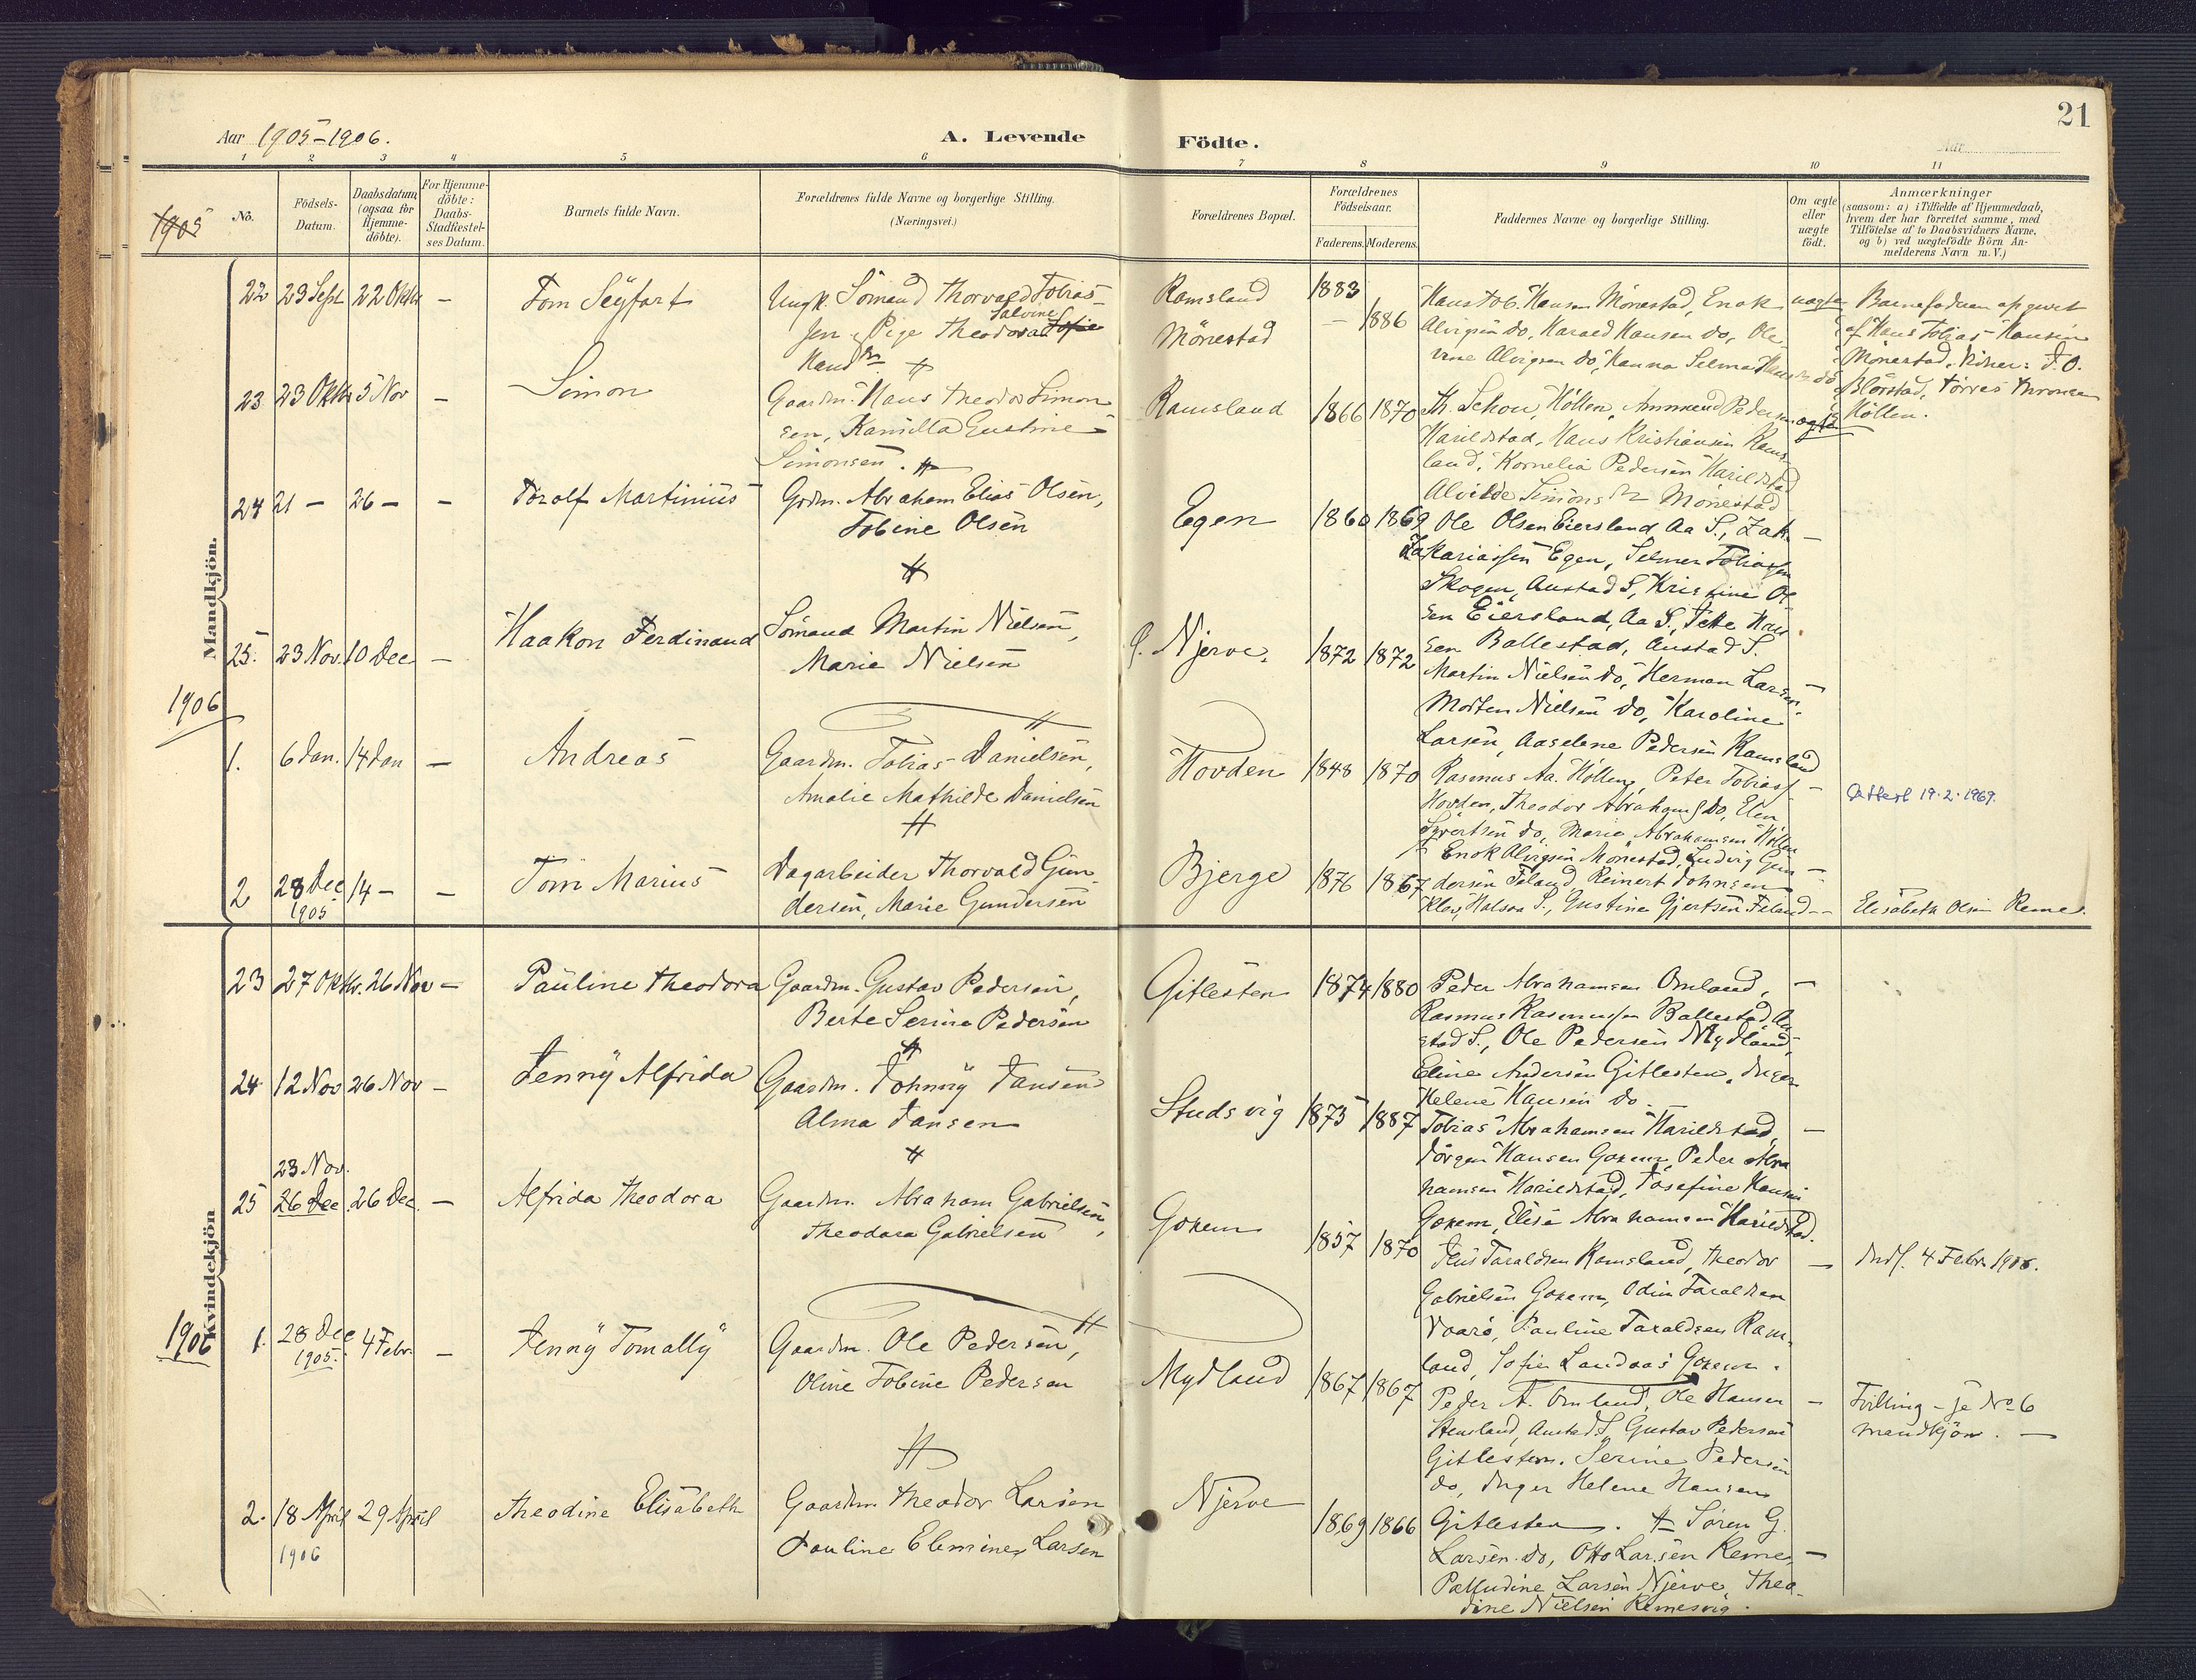 21
Aar 1905-1906.
A. Levende Födte.
Aar
1 2 3 4 5 6 7 8 9 10 11
1905
No.
Födsels-
Datum.
Daabsdatum
(ogsaa for
Hjemme-
döbte).
For Hjemme-
döbte:
Daabs-
Stadfæstel-
ses Datum.
Barnets fulde Navn.
Forældrenes fulde Navne og borgerlige Stilling.
(Næringsvei.)
Forældrenes Bopæl.
Forældrenes
Födselsaar.
Faderens. Moderens.
Faddernes Navne og borgerlige Stilling.
Om ægte
eller
uægte
födt.
Anmærkninger
(saasom: a) i Tilfælde af Hjemmedaab,
hvem der har forrettet samme, med
Tilföielse af to Daabsvidners Navne,
og b) ved uægtefödte Börn An-
melderens Navn m. V.)
Mandkjön.
22 23 Sept 22 Oktb - Tom Seyfart
Ungk. Sömand Thorvald Tobias-
sen, Pige Theodora Salvine Sofie
Ramsland 1883
Mönestad - 1886
Hans Tob. Hansen Mönestad, Enok
Alvigsen do, Harald Hansen do, Ole
vine Alvigsen do, Hanna Selma do
uægte
Barnefaderen opgivet
af Hans Tobias Hansen
Mönestad. Vidner: J.O.
Blörstad, Törres
Höllen.
23 23 Oktb 5 Nov - Simon
Gaardm. Hans Theodor Simon
sen, Kamilla Gustine
Simonsen.
Ramsland 1866 1870
Th. Schou, Höllen, Ammund Pedersen
Harildstad, Hans Kristiansen Rams
land, Kornelia Pedersen Harildstad
Alvilde Simonsen Mönestad
ægte
24 21 - 26 - - Torolf Martinius
Grdm. Abraham Elias Olsen,
Tobine Olsen
Egen 1860 1869
Ole Olsen Eiersland Aa S., Zak.
Zakariassen Egen, Selmer Tobiassen
Skogen, Austad S, Kristine Ol
sen Eiersland, Aa S.,
sen Ballestad, Austad S.
25. 23 Nov. 10 Dec - Haakon Ferdinand
Sömand Martin Nielsen,
Marie Nielsen
Njerve. 1872 1872
Martin Nielsen do, Herman Larsen
Morten Nielsen do, Karoline
Larsen, Aaselene Pedersen Ramsland
1906
1. 6 Jan. 14 Jan - Andreas
Gaardm. Tobias Danielsen,
Amalie Mathilde Danielsen
Hovden 1848 1870
Rasmus Aa. Höllen, Peter Tobiass
Hovden, Theodor Abrahams do, Elen
Syvertsen do, Marie Abrahamsen Höllen
Attest 19.2.1969.
2 28 Dec 1905 14 - - Tom Marius
Dagarbeider Thorvald Gun
dersen, Marie Gundersen
Bjerge 1876 1867
Enok Alvigsen Mönestad, Ludvig Gun
dersen Foland, Reinert Johnsen
Klev, Halsaa S., Gustine Gjertsen Foland --
Elisabeth Olsen Reme.
Kvindekjön
23 27 Oktbr. 26 Nov - Pauline Theodora
Gaardm. Gustav Pedersen,
Berte Serine Pedersen
Gitlesten 1874 1880
Peder Abrahamsen Omland,
Rasmus Rasmussen Ballestad, Au
stad S., Ole Pedersen Mydland,
Eline Andersen Gitlesten, Inger
Helene Hansen do.
24 12 Nov 26 Nov - Jenny Alfrida
Gaardm. Johnny Jansen
Alma Jansen
Studsvig 1875 1887
Tobias Abrahamsen Harildstad,
Jörgen Hansen Gokem, Peder Abra
hamsen Harildstad, Josefine Hansen
Gokem, Elise Abrahamsen Harildstad.
25 23 Nov. 26 Dec 26 Dec. - Alfrida Theodora
Gaardm. Abraham Gabrielsen,
Theodora Gabrielsen
Gokem 1857 1870
Jens Taraldsen Ramsland, Theodor
Gabrielsen Gokem, Odin Taraldsen
Voarö, Pauline Taraldsen Ram
land, Sofie Landaas Gokem.
Indf. 4 Febr. 1906.
1906
1. 28 Dec 1905. 4 Febr. - Jenny Tomally
Gaardm. Ole Pedersen,
Oline Tobine Pedersen
Mydland 1867 1867
Peder A. Omland, Ole Hansen
Hemsland, Austad S, Gustav Pedersen
Gitlesten. Serine Pedersen
do, Inger Helene Hansen
Gitlesten.
Tvilling - se No 6
mandkjön. -
2. 18 April 1906 29 April Theodine Elisabeth
Gaardm. Theodor Larsen
Pauline Elemine Larsen
Njerve 1869 1866
Sören G.
Larsen do, Otto Larsen Reme,
Palludine Larsen Njerve, Theo-
dine Nielsen Remesvig.